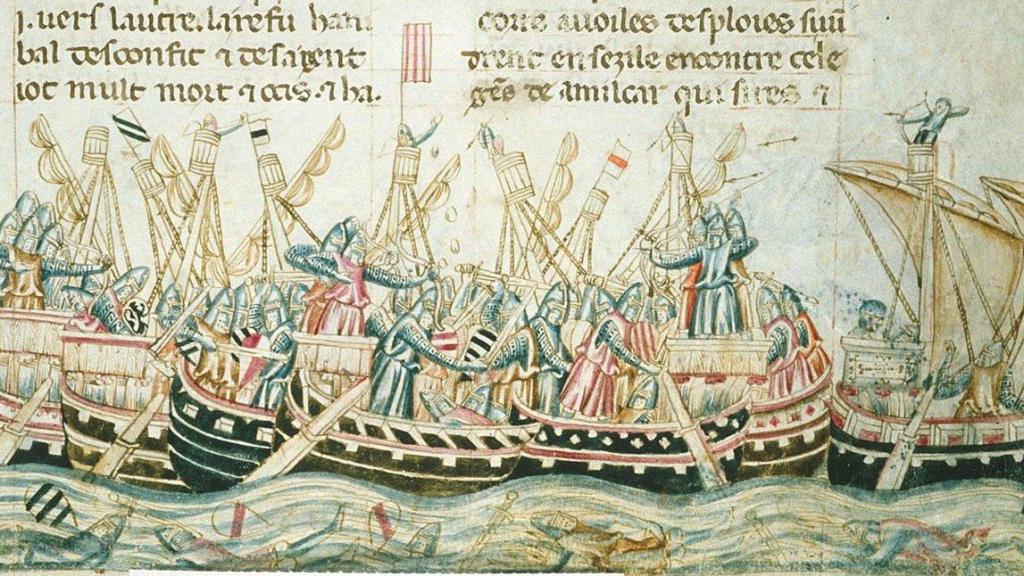 j. uers lautre. la refu hani
bal desconfit ⁊ de sa gent
iot mult mort ⁊ ocis. ⁊ ha.
auoiles desploies
drent en sezile encontre cele
gēs de amilcar qui sires ⁊